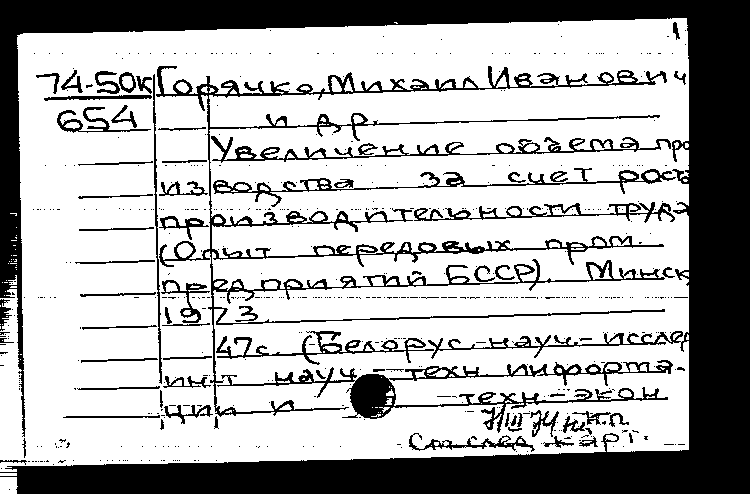 1
74-50к Горячко, Михаил Иванович
654 и др.
Увеличение объема про
изводства за счет роста
производительности труда
(Опыт передовых пром.
предприятий БССР). Минск
1973.
47с. (Белорус. науч.-исслед
ин-т науч.-техн информа-
ции и техн-экон
н.п.
См след. карт.